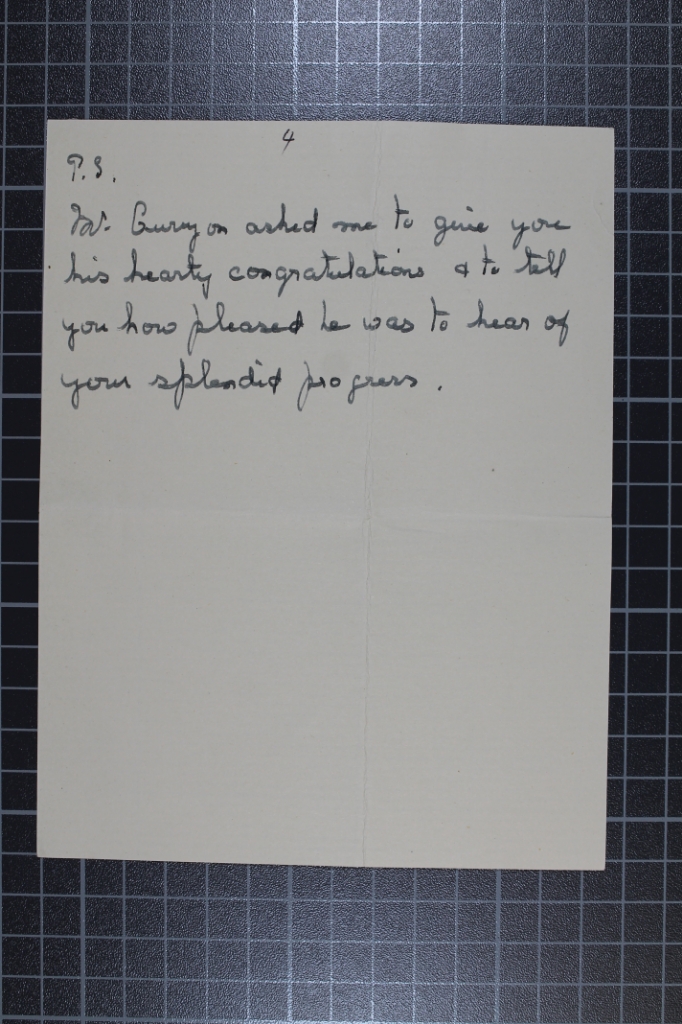 4
P.S.
Mr. asked me to give you
his hearty congratulations & to tell
you how pleased he was to hear of
your splendid progress.